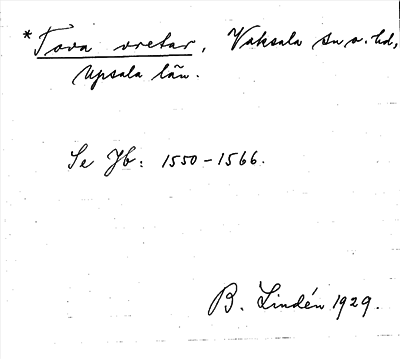 *Tova vretar, Vaksala sn o. hd,
Upsala län.
Se Jb: 1550-1566.
B. Lindén 1929.